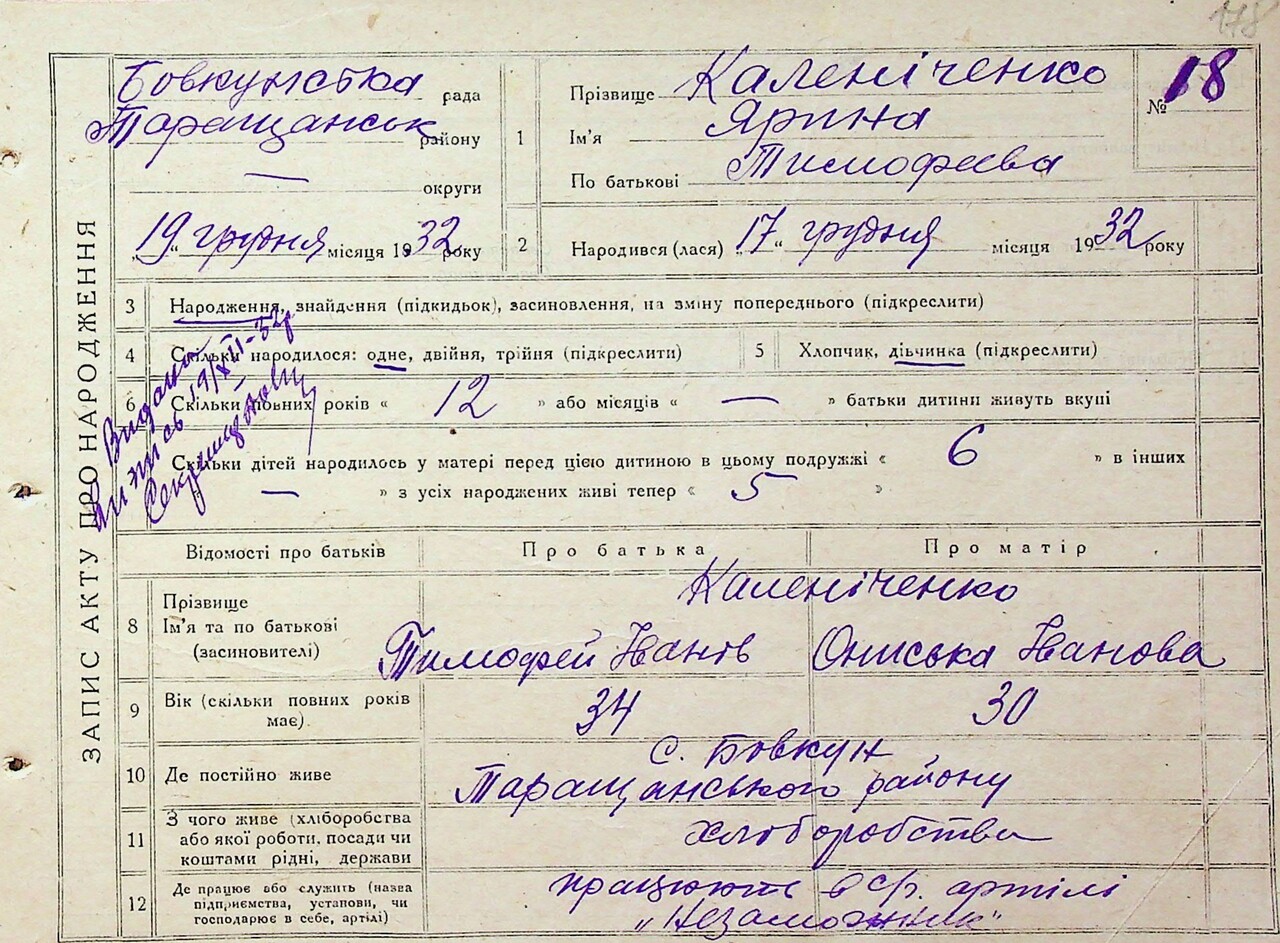 178
ЗАПИС АКТУ ПРО НАРОДЖЕННЯ
Бовкунська рада
Таращанськ району
— округи
„19“ грудня місяця 1932 року
1 Прізвище Каленіченко
Ім'я Ярина
По батькові Тимофеева
№ 18
2 Народився (лася) „17“ грудня місяця 1932 року
3 Народження, знайдення (підкидьок), засиновлення, на зміну попереднього (підкреслити)
4 Скільки народилося: одне, двійня, трійня (підкреслити)
5 Хлопчик, дівчинка (підкреслити)
6 Скільки повних років « 12 » або місяців « — » батьки дитини живуть вкупі
Скільки дітей народилось у матері перед цією дитиною в цьому подружжі « 6 » в інших
— » з усіх народжених живі тепер « 5 »
Видано
19/XII-32р
Відомості про батьків Про батька Про матір
8 Прізвище
Ім'я та по батькові
(засиновителі)
Каленіченко
Тимофей Іванов Ониська Іванова
9 Вік (скільки повних років
має)
34 30
10 Де постійно живе
с. Бовкун
Таращанського району
11 З чого живе (хліборобства
або якої роботи, посади чи
коштами рідні, держави
хлоборобства
12 Де працює або служить (назва
підприємства, установи, чи
господарює в себе, артілі)
працюют в с/г. артілі
„Незаможник“